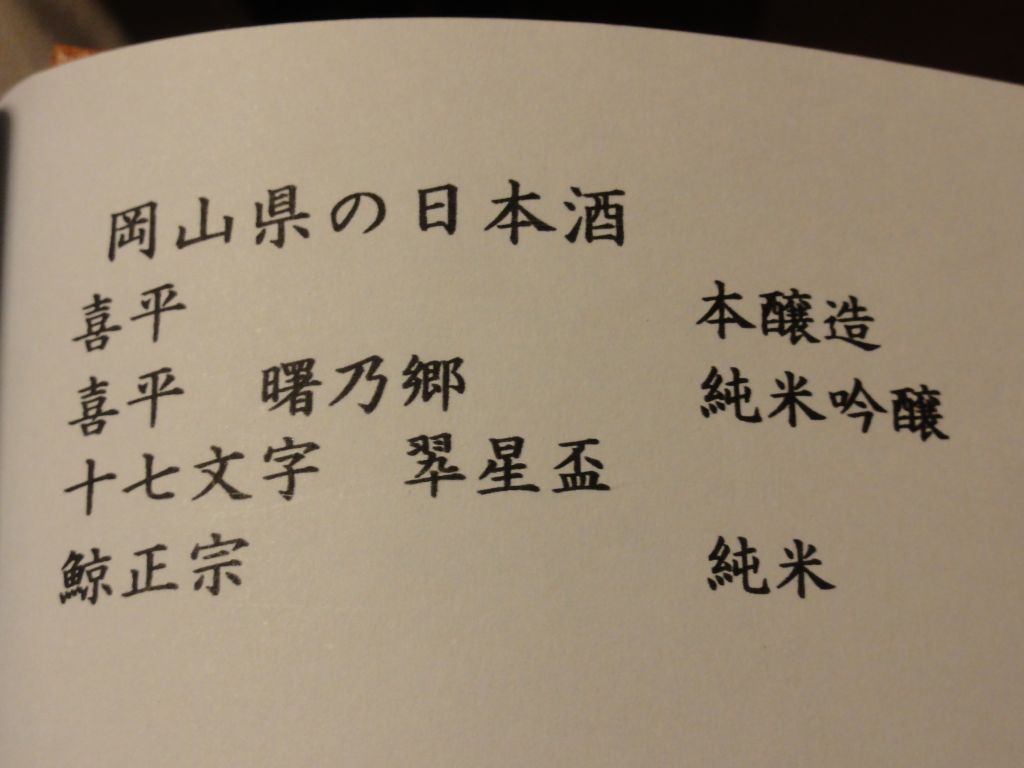 岡山県の日本酒
喜平 本醸造
喜平 曙乃郷 純米吟醸
十七文字 翆星盃
鯨正宗 純米